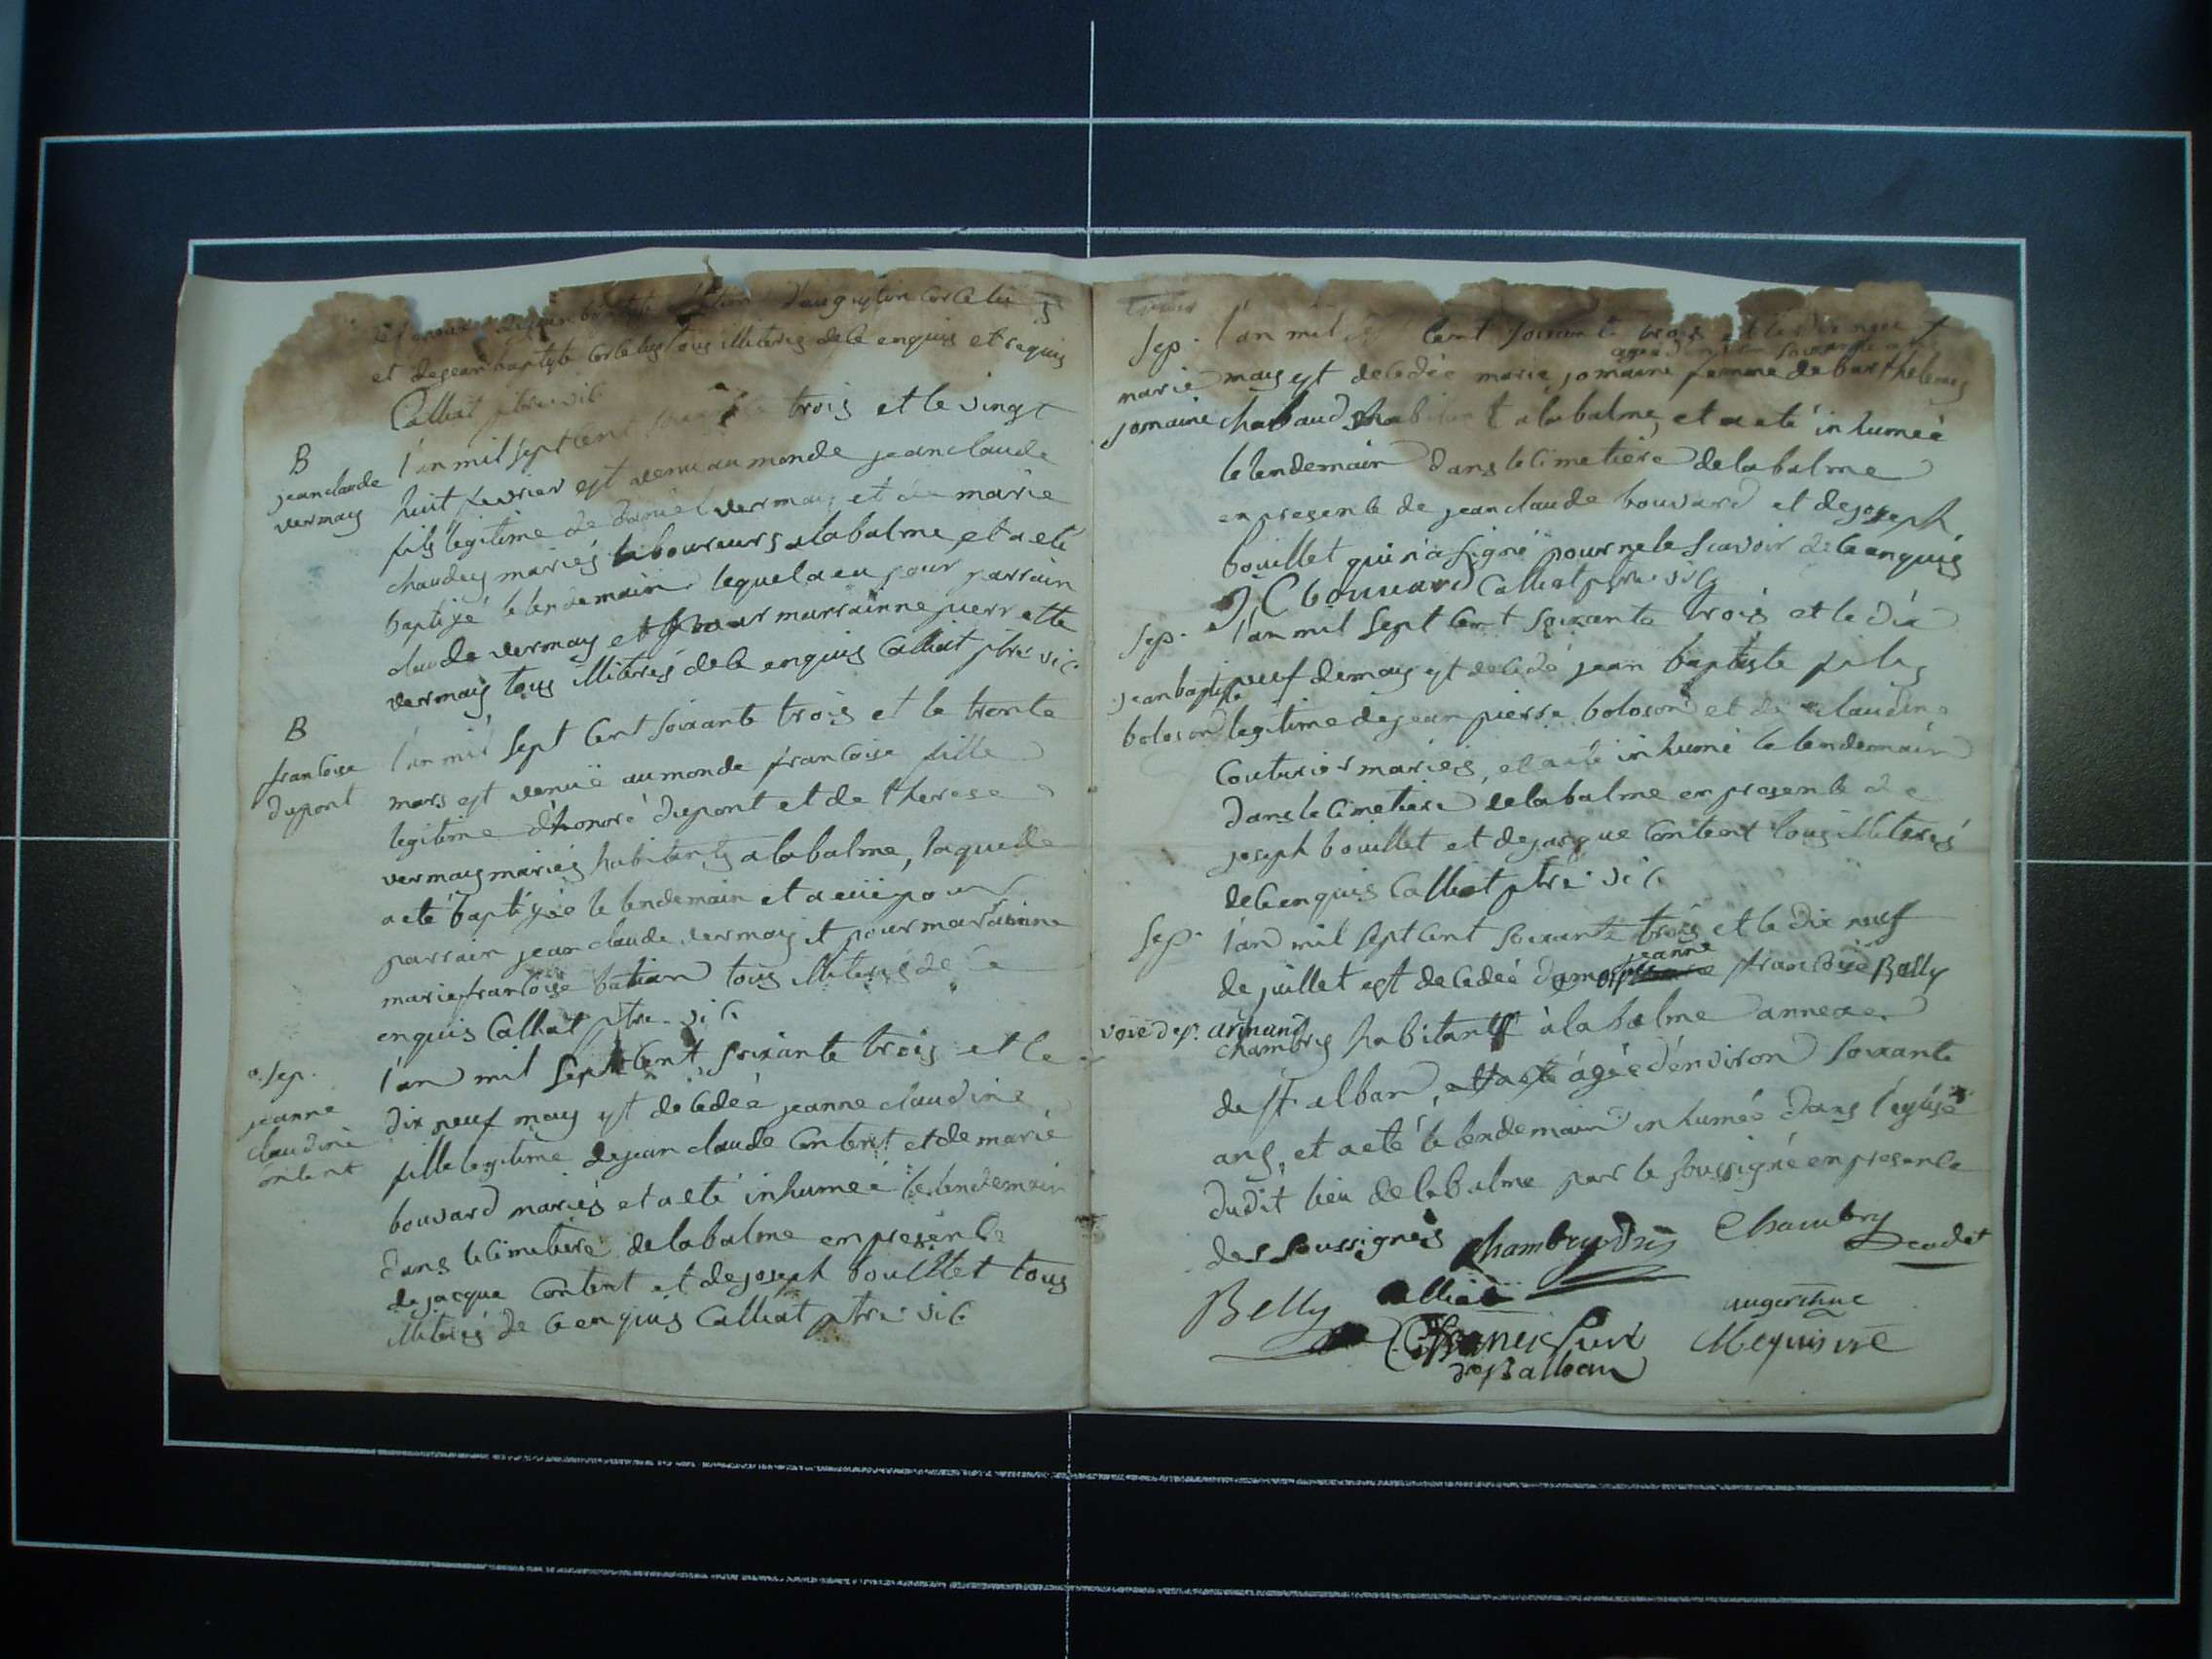 et de jean baptiste tous illiterés de ce enquis et requis
Calliat ptre vic
B
jean claude
vermay
l'an mil sept cent trois et le vingt
huit fevrier est venu au monde jean claude
fils legitime de daniel vermay et de marie
chaudey mariés laboureurs a la balme, et a eté
baptisé le lendemain lequel a eu pour parrain
claude vermay et pour marrainne pierrette
vermay tous illiterés de ce enquis Calliat ptre vic
B
francoise
dupont
l'an mil sept cent soixante trois et le trente
mars est venuë au monde francoise fille
legitime d'honoré dupont et de therese
vermay mariés habitants a la balme, laquelle
a eté baptisée le lendemain et a euë pour
parrain jean claude vermay et pour marrainne
marie francoise tous illiterés de ce
enquis Calliat ptre vic
sep.
jeanne
claudine
content
l'an mil sept cent soixante trois et le
dix neuf may est decedée jeanne claudine
fille legitime de jean claude Content et de marie
bouvard mariés et a eté inhumée le lendemain
dans le cimetiere de la balme en presence
de jacque Content et de joseph bouillet tous
illiterés de ce enquis Calliat ptre vic
sep.
marie
jomaine
l'an mil cent soixante trois et le
may est decedée marie jomaine femme de barthelemy
chabaud a la balme, et a eté inhumée
le lendemain dans le cimetiere de la balme
en presence de jean claude bouvard et de joseph
bouillet qui n'a signé pour ne le scavoir de ce enquis
J C bouuard Calliat ptre vic
sep.
jean baptiste
boloson
l'an mil sept cent soixante trois et le dix
neuf de may est decedé jean baptiste fils
legitime de jean pierre boloson et de claudine
Couturier mariés, et a eté inhumé le lendemain
dans le cimetiere de la balme en presence de
joseph bouillet et de jacque Content tous illiterés
de ce enquis Calliat ptre vic
sep.
l'an mil sept cent soixante trois et le dix neuf
jeanne
de juillet est decedée francoise Belly
chambry habitante à la balme annexe
de st alban, âgée d'environ soixante
ans, et a eté le lendemain inhumée dans l'eglise
dudit lieu de la balme par le soussigné en presence
des soussignés Chambry Chambry
cadet
Belly Calliat